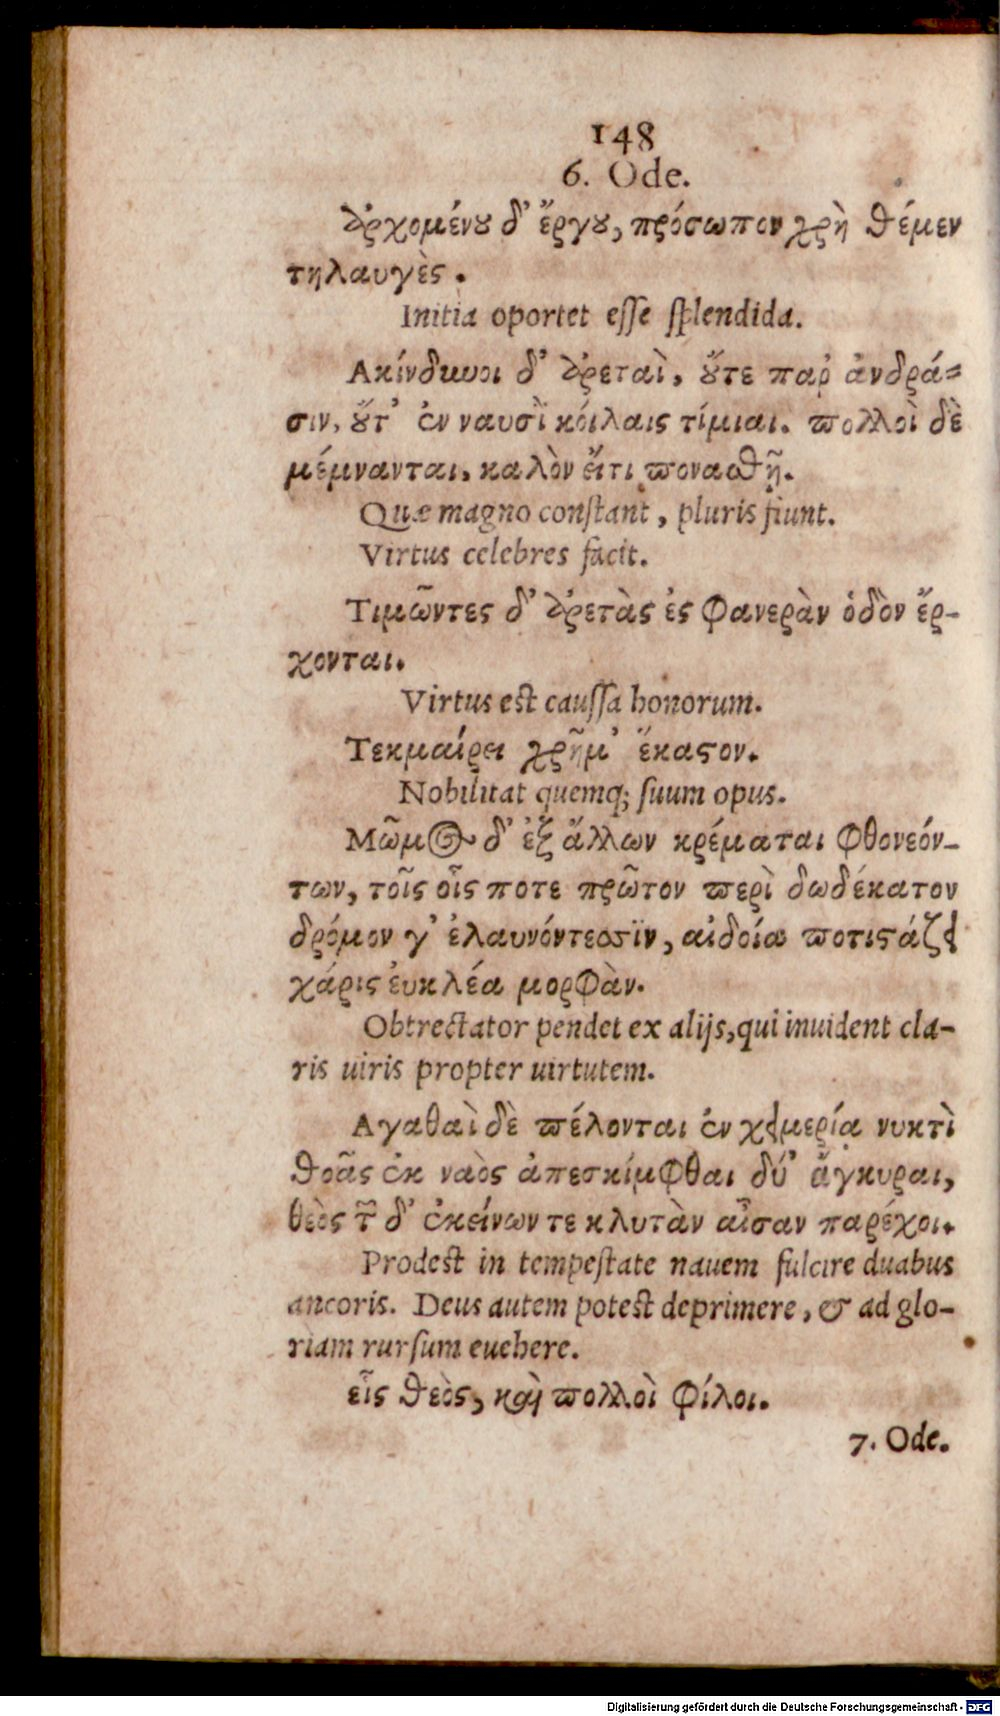 148
6. Ode.
ἀρχομένȣ δ᾽ ἔργȣ, πρόσωπον χρὴ θέμεν
τηλαυγὲς.
Initia oportet eſſe ſplendida.
Ακίνδυνοι δ᾽ ἀρεταὶ, ȣ῎τε παρ ἀνδρά-
σιν, ȣ῎τ᾽ ἐν ναυσὶ κόιλαις τίμιαι. πολλοὶ δὲ
μέμνανται, καλὸν εἴτι ποναθῇ.
Quæ magno conſtant, pluris fiunt.
Virtus celebres facit.
Τιμῶντες δ᾽ ἀρετὰς ἐς φανερὰν ὁδὸν ἔρ-
χονται.
Virtus est cauſſa honorum.
Τεκμαίρει χρῆμ᾽ ἕκαστον.
Nobilitat quemq; ſuum opus.
Μῶμος δ᾽ ἐξ ἄλλων κρέμαται φθονεόν-
των, τοῖς οἷς ποτε πρῶτον περὶ δωδέκατον
δρόμον γ᾽ ἐλαυνόντεσσϊν, αἰδοία ποτιστάζει
χάρις ἐυκλέα μορφὰν.
Obtrectator pendet ex alijs, qui inuident cla-
ris uiris propter uirtutem.
Αγαθαὶ δὲ πέλονται ἐν χειμερία νυκτὶ
θοᾶς ἐκ ναὸς ἀπεσκίμφθαι δύ᾽ ἄγκυραι,
θεὸς τ῀ δ᾽ ἐκείνων τε κλυτὰν αἶσαν παρέχοι.
Prodest in tempeſtate nauem fulcire duabus
ancoris. Deus autem potest deprimere, & ad glo-
riam rurſum euehere.
εἷς θεὸς, καὶ πολλοὶ φίλοι.
7. Ode.
Digitalisierung gefördert durch die Deutsche Forschungsgemeinschaft - DFG